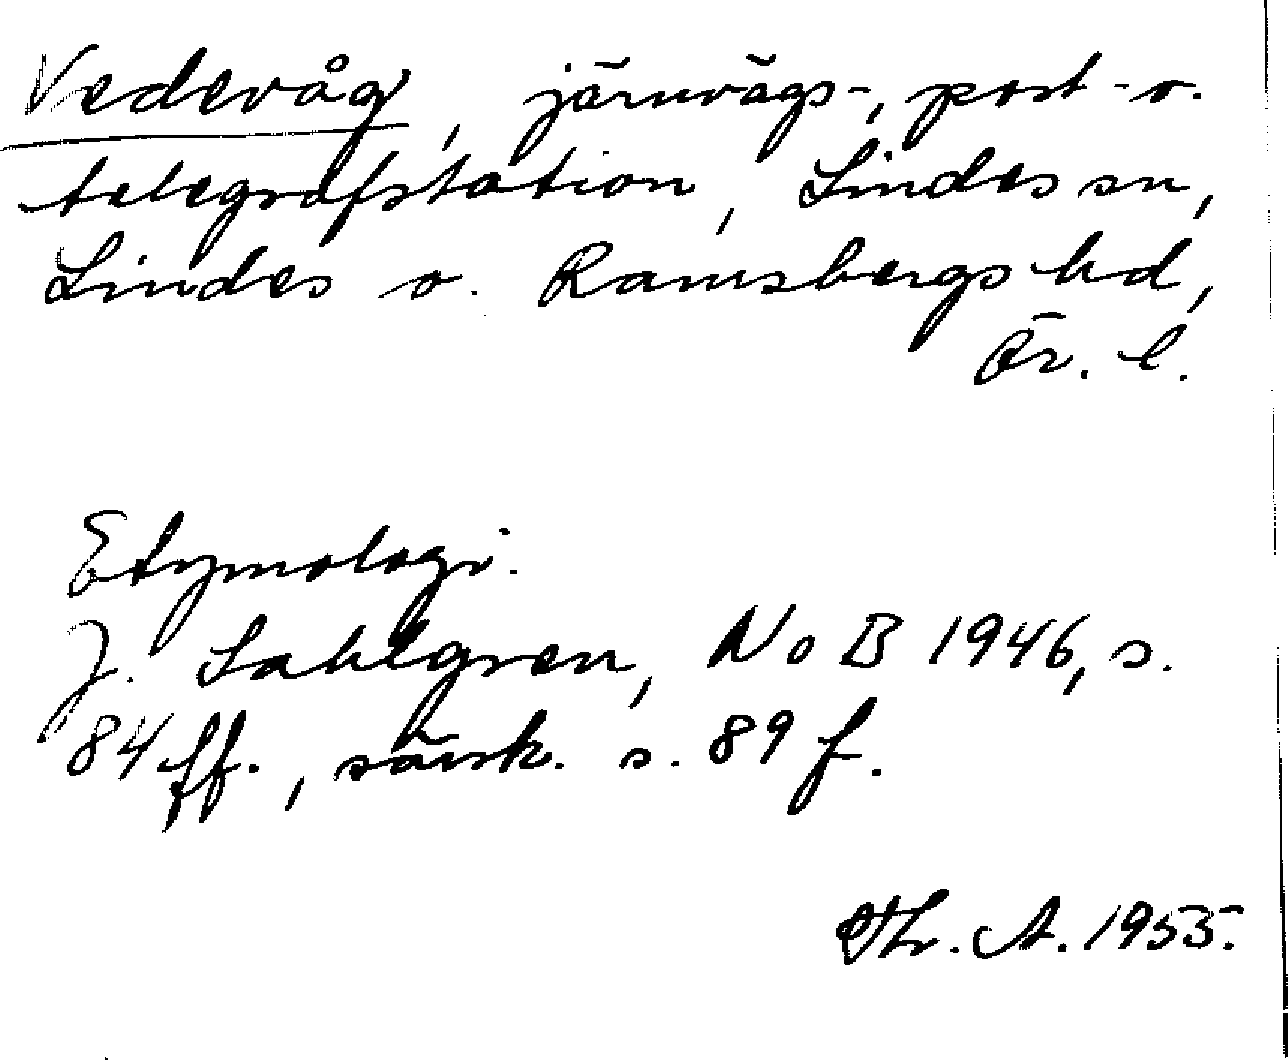 Vedevåg, järnvägs-, post- o.
telegrafstation, Lindes sn,
Lindes o. Ramsbergs hd,
Ör. l.
Etymologi.
J. Sahlgren, NoB 1946, s.
84 ff., särsk. s. 89 f.
Th. A. 1955.